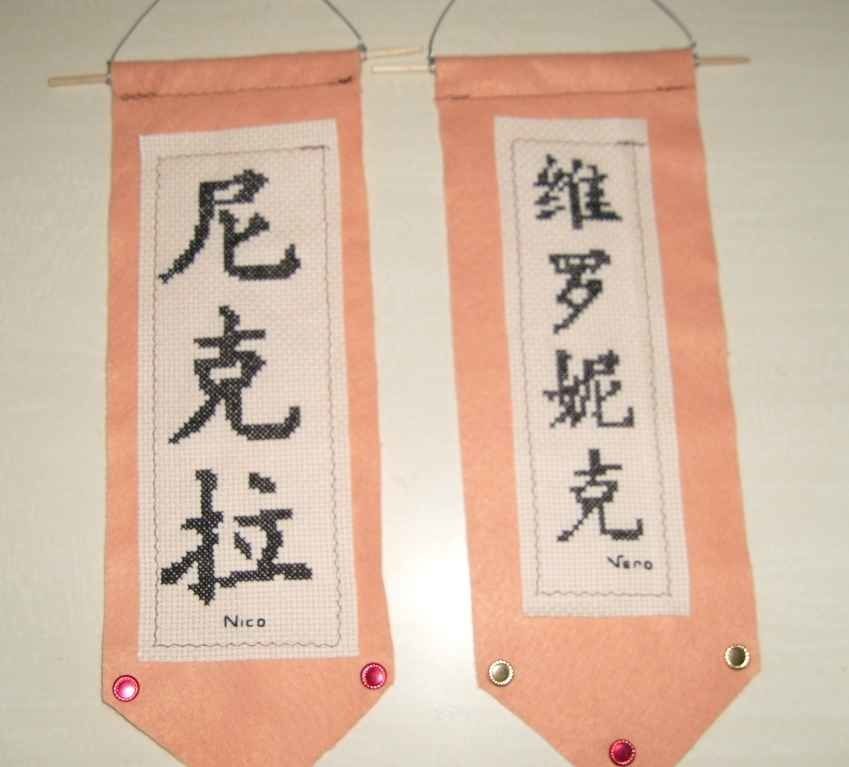 尼克拉
Nico
维罗妮克
Vero